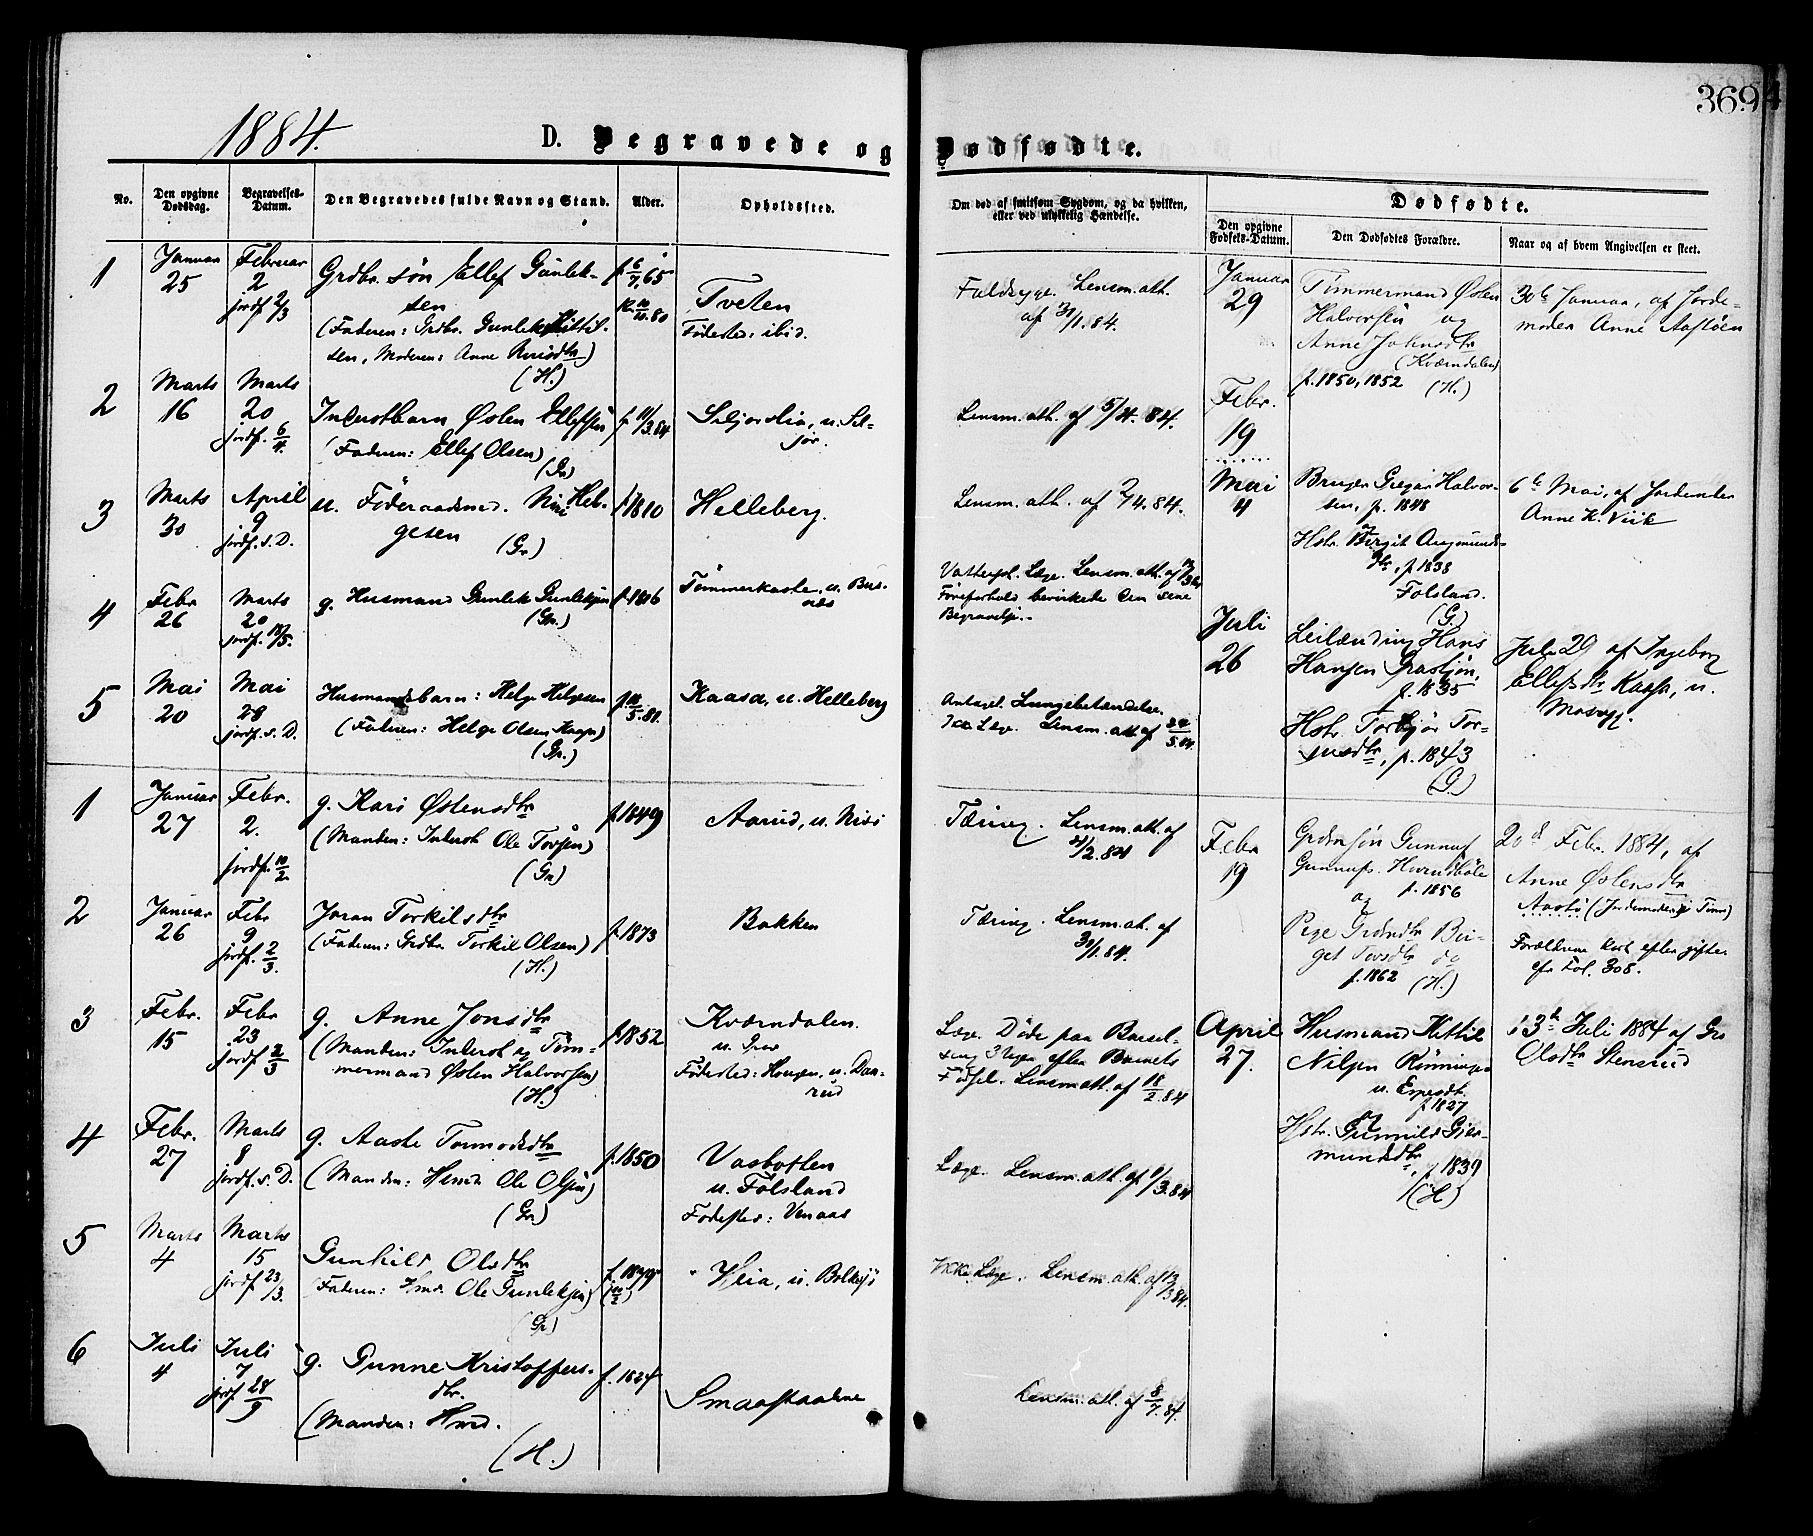 369
1884.
D. Begravede og Dødfødte.
No.
Den opgivne Dødsdag.
Begravelses-Datum.
Den Begravedes fulde Navn og Stand.
Alder.
Opholdssted.
Om død af smitsom Sygdom, og da hvilken, eller ved ulykkelig Hændelse.
Dødfødte.
Den opgivne Fødsels-Datum.
Den Dødfødtes Forældre.
Naar og af hvem Angivelsen er skeet.
1
Januar 25
Februar 2
jordf. 2/3
Grdbr. søn Ellef Gunlek-
sen
(Faderen: Grdbr. Gunlek Kittil-
sen, Moderen: Anne
(H.)
Tveten
Fødested: ibid.
Faldsyge. Lensm. att.
af 30/1. 84.
2
Marts 16
Marts 20
jordf. 6/4.
Inderstbarn Østen Ellefsen
(Faderen: Ellef Olsen)
(Gr)
f. 11/3.84
Siljordlia, u. Sil-
jor.
Lensm. att. af 5/4. 84.
3
Marts 30
April 9
jordf. s. D.
u. Føderaadsmd. Hel-
gesen
(Gr.)
f. 1810
Helleberg.
Lensm. att. af 7/4. 84.
4
Febr 26
Marts 20
jordf. 18/5.
g. Husmand Gunlek Gunleksen
(Gr.)
f. 1806
Tømmerkaste, u. Bus-
næs
Vattersot. Læge. Lensm. att. af
Føreforhold bevirkede den sene
Begravelse.
5
Mai 20
Mai 28
jordf. s. D.
Husmandsbarn: Helge Helgesen
(Faderen: Helge Olsen Kaasa)
(Gr.)
Kaasa, u. Helleberg
Antaget Lungebetændelse.
Ikke Læge. Lensm. att. af
1
Januar 27
Febr. 2.
jordf. 10/2.
g. Kari Østensdtr
(Manden: Inderst Ole Tovsen)
(Gr)
f. 1849
Aarud, u. Nisi
Tæring. Lensm. att. af
2
Januar 26
Febr 9
jordf. 2/3.
Joran Torkilsdtr
(Faderen: Grdbr. Torkil Olsen)
(H.)
f. 1873
Bakken
Tæring. Lensm. att. af
30/1. 84.
3
Febr. 15
Febr 23
jordf. 2/3
g. Anne Jonsdtr
(Manden: Inderst og Tøm-
mermand Østen Halvorsen)
(H.)
f. 1852
Kværndalen.
Fødested: Haugen, u. Dan-
rud
Læge. Døde paa Barsel-
seng 3 Uger efter Barnets
Fødsel. Lensm att. af 18/2. 84
4
Febr. 27
Marts 8
jordf. s. D.
g. Aaste Tormodsdtr
(Manden: Hmd. Ole Olsen)
(Gr)
f. 1850
Vasbotten
u. Folsland
Fødested: Venaas
Læge. Lensm. att. af
5
Marts 4
Marts 15
jordf 23/3.
Gunhild Olsdtr
(Faderen: Hmd. Ole Gunleksen)
(Gr)
Heia, u. Bolkesjø
Ikke Læge. Lensm. att. af 13/3 84.
6
Juli 4
Juli 7
jordf 28/9
g. Gunne Kristoffers-
dtr.
(Manden: Hmd.
(H.)
f. 1824
Lensm. att. af 8/7. 84.
Januar 29
Tømmermand Østen
Halvorsen og
Anne Johnsdtr
(Kværndalen)
f. 1850, 1852 (H.)
30te Januar, af Jorde-
moder Anne Aastøen
Febr. 19
Mai 4
Bruger Gregar Halvor-
sen, f. 1848
Hstr. Birgit Aasmunds-
dtr, f. 1838
Folsland.
(G)
6te Mai, af Jordemoder
Anne K. Viik
Juli 26
Leilænding Hans
Hansen Grasljøn,
f. 1835
Hstr. Torbjør Tor-
f. 1843
(G.)
Juli 29 af Ingeborg
Ellefsdtr Kaasa, u.
Febr 19
Grdbrsøn Gunnuf
f. 1856
og
Pige Grdbrdtr Bir-
get Tovsdtr do
f. 1862 (H.)
20de Febr. 1884, af
Anne Østensdtr
Aastø (Jordemoder i Tinn)
Forældrene kort efter gifte
cfr Fol. 308.
April 27.
Husmand Kittil
Nilsen Rønningen
u. Espesdt.
f 1827
og
Hstr. Gunnild Gjer-
mundsdtr, f. 1839
(H)
13de Juli 1884 af Gro
Olsdtr Stensrud